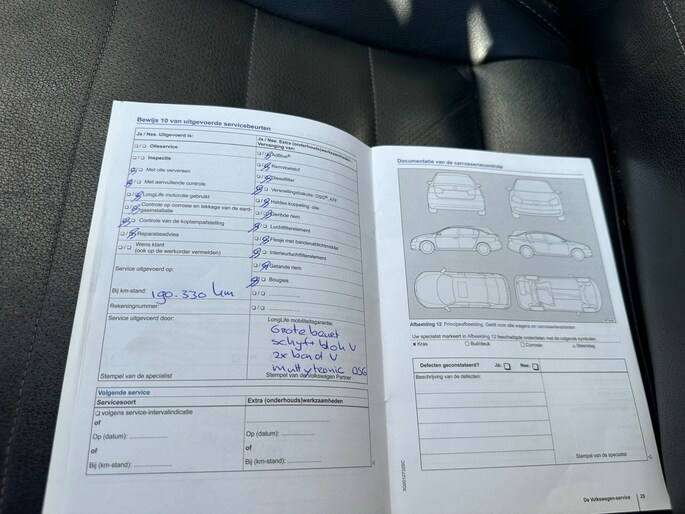 Bewijs 10 van uitgevoerde servicebeurten
Ja / Nee. Uitgevoerd is:
Olieservice
Inspectie
Met olie verversen
Met aanvullende controle
LongLife motorolie gebruikt
Controle op corrosie en lekkage van de aard-
gasinstallatie
Controle van de koplampafstelling
Reparatieadvies
Wens klant
(ook op de werkorder vermelden)
Service uitgevoerd op:
Bij km-stand: 190.330 km
Rekeningnummer:
Service uitgevoerd door:
Stempel van de specialist
Ja / Nee. Extra (onderhouds)werkzaamheden:
Vervanging van:
AdBlue®
Remvloeistof
Dieselfilter
Versnellingsbakolie: DSG®, ATF
Haldex-koppeling: olie
Geribde riem
Luchtfilterelement
Flesje met bandendichtmiddel
Interieurluchtfilterelement
Getande riem
Bougies
LongLife mobiliteitsgarantie:
Grote beurt
2x band V
DSG
Stempel van de Volkswagen Partner
Volgende service
Servicesoort
Extra (onderhouds)werkzaamheden
volgens service-intervalindicatie
of
Op (datum):
of
Bij (km-stand):
Op (datum):
of
Bij (km-stand):
Documentatie van de carrosseriecontrole
Afbeelding 12 Principeafbeelding. Geldt voor alle wagens en carrosserievarianten
Uw specialist markeert in Afbeelding 12 beschadigde onderdelen met de volgende symbolen:
Kras
Buil/deuk
Corrosie
Steenslag
Defecten geconstateerd? Ja: Nee:
Beschrijving van de defecten:
Stempel van de specialist
De Volkswagen-service 25